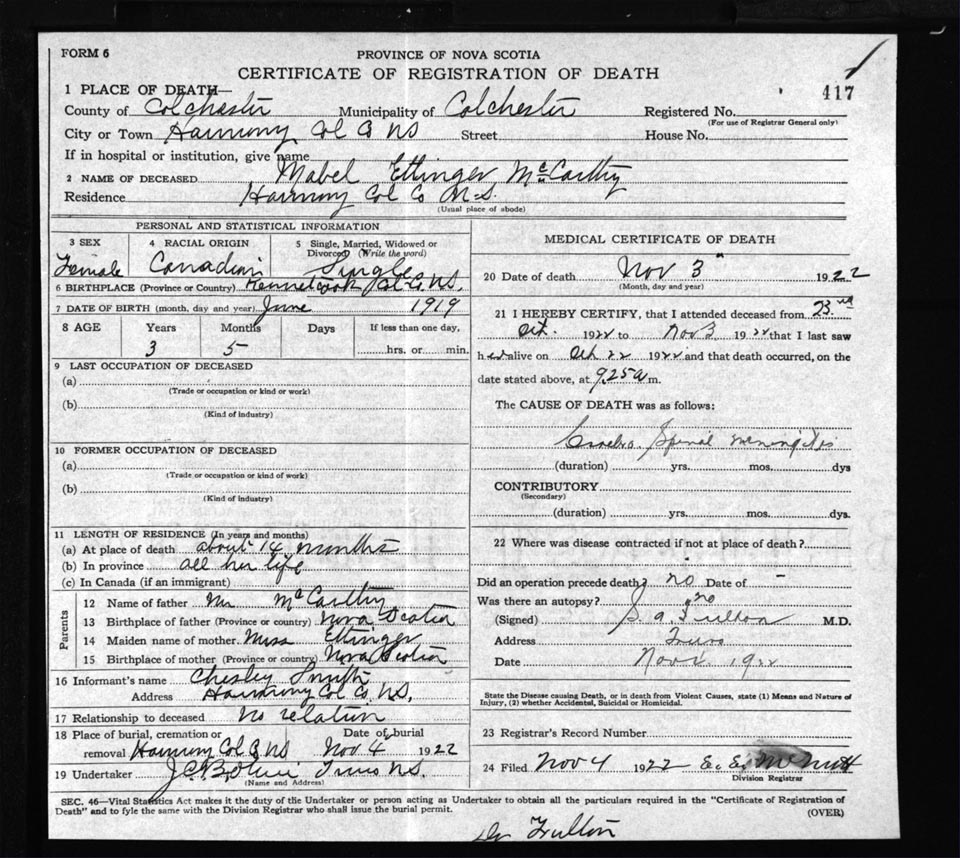 FORM 6
PROVINCE OF NOVA SCOTIA
CERTIFICATE OF REGISTRATION OF DEATH
417
1 PLACE OF DEATH—
County of Colchester Municipality of Colchester Registered No.
(For use of Registrar General only)
City or Town Harmony Col Co NS Street House No.
If in hospital or institution, give name
2 NAME OF DECEASED Mabel Ettinger McCarthy
Residence Harmony Col Co N.S.
(Usual place of abode)
PERSONAL AND STATISTICAL INFORMATION
3 SEX Female
4 RACIAL ORIGIN Canadian
5 Single, Married, Widowed or Divorced (Write the word) Single
6 BIRTHPLACE (Province or Country) Kennetcook Col. Co, N.S.
7 DATE OF BIRTH (month, day and year) June 1919
8 AGE Years Months Days If less than one day,
3 5 hrs. or min.
9 LAST OCCUPATION OF DECEASED
(a)
(Trade or occupation or kind or work)
(b)
(Kind of industry)
10 FORMER OCCUPATION OF DECEASED
(a)
(Trade or occupation or kind of work)
(b)
(Kind of industry)
11 LENGTH OF RESIDENCE (In years and months)
(a) At place of death about 14 months
(b) In province all her life
(c) In Canada (if an immigrant)
Parents
12 Name of father Mr McCarthy
13 Birthplace of father (Province or country) Nova Scotia
14 Maiden name of mother Miss Ettinger
15 Birthplace of mother (Province or country) Nova Scotia
16 Informant's name Chesley Smith
Address Harmony Col. Co. N.S.
17 Relationship to deceased no relation
18 Place of burial, cremation or Date of burial
removal Harmony Col Co NS Nov 4 1922
19 Undertaker Truro N.S.
(Name and Address)
MEDICAL CERTIFICATE OF DEATH
20 Date of death Nov 3 1922
(Month, day and year)
21 I HEREBY CERTIFY, that I attended deceased from 23rd
Oct. 1922 to Nov 3 1922 that I last saw
her alive on Oct 22 1922 and that death occurred, on the
date stated above, at 9.25 a m.
The CAUSE OF DEATH was as follows:
Cerebro Spinal meningitis
(duration) yrs. mos. dys
CONTRIBUTORY
(Secondary)
(duration) yrs. mos. dys.
22 Where was disease contracted if not at place of death?
Did an operation precede death? no Date of —
Was there an autopsy? no
(Signed) S. A. Fulton M.D.
Address Truro
Date Nov 1922
State the Disease causing Death, or in death from Violent Causes, state (1) Means and Nature of
Injury, (2) whether Accidental, Suicidal or Homicidal.
23 Registrar's Record Number
24 Filed Nov 4 1922 E. E. McNutt
Division Registrar
SEC. 46—Vital Statistics Act makes it the duty of the Undertaker or person acting as Undertaker to obtain all the particulars required in the "Certificate of Registration of
Death" and to fyle the same with the Division Registrar who shall issue the burial permit.
(OVER)
Dr Fulton